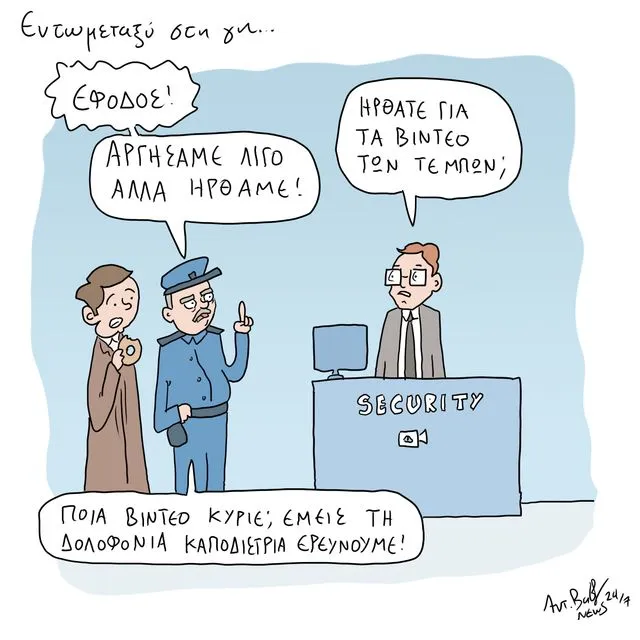 Εντωμεταξύ στη γη...
ΕΦΟΔΟΣ!
ΑΡΓΗΣΑΜΕ ΛΙΓΟ
ΑΛΛΑ ΗΡΘΑΜΕ!
ΗΡΘΑΤΕ ΓΙΑ
ΤΑ ΒΙΝΤΕΟ
ΤΩΝ ΤΕΜΠΩΝ;
SECURITY
ΠΟΙΑ ΒΙΝΤΕΟ ΚΥΡΙΕ; ΕΜΕΙΣ ΤΗ
ΔΟΛΟΦΟΝΙΑ ΚΑΠΟΔΙΣΤΡΙΑ ΕΡΕΥΝΟΥΜΕ!
Αντ. 24/7
NEWS